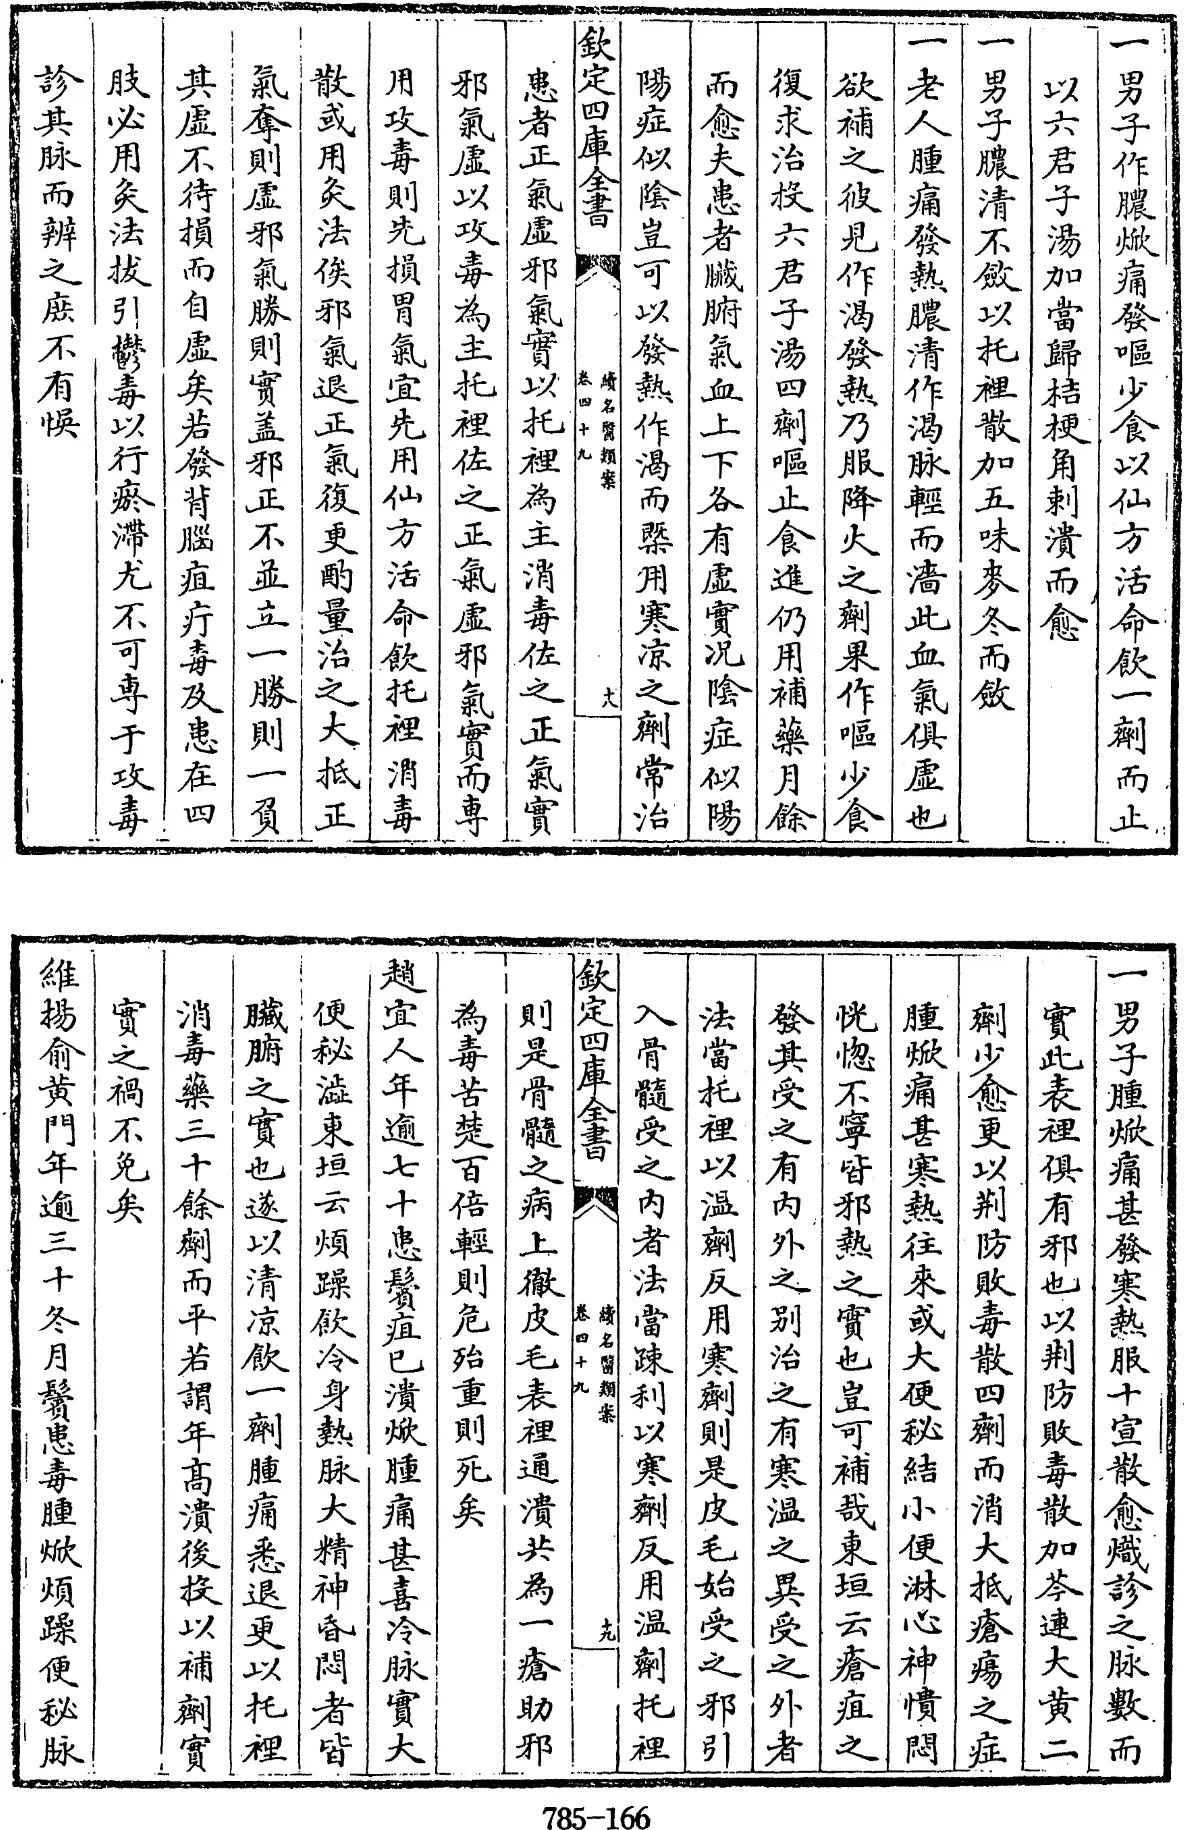 一男子作膿焮痛發嘔少食以仙方活命飲一劑而止
以六君子湯加當歸桔梗角刺潰而愈
一男子膿清不斂以托裡散加五味麥冬而斂
一老人腫痛發熱膿清作渴脉輕而濇此血氣俱虛也
欲補之彼見作渴發熱乃服降火之劑果作嘔少食
復求治投六君子湯四劑嘔止食進仍用補藥月餘
而愈夫患者臟腑氣血上下各有虛實况陰症似陽
陽症似陰豈可以發熱作渴而槩用寒凉之劑常治
欽定四庫全書
續名醫類案
卷四十九
十八
患者正氣虛邪氣實以托裡為主消毒佐之正氣實
邪氣虛以攻毒為主托裡佐之正氣虛邪氣實而專
用攻毒則先損胃氣宜先用仙方活命飲托裡消毒
散或用灸法俟邪氣退正氣復更酌量治之大抵正
氣奪則虛邪氣勝則實盖邪正不並立一勝則一負
其虛不待損而自虛矣若發背腦疽疔毒及患在四
肢必用灸法拔引鬱毒以行瘀滯尤不可專于攻毒
診其脉而辨之庶不有悞
一男子腫焮痛甚發寒熱服十宣散愈熾診之脉數而
實此表裡俱有邪也以荆防敗毒散加芩連大黄二
劑少愈更以荆防敗毒散四劑而消大抵瘡瘍之症
腫焮痛甚寒熱往來或大便秘結小便淋心神憒悶
恍惚不寧皆邪熱之實也豈可補哉東垣云瘡疽之
發其受之有内外之别治之有寒温之異受之外者
法當托裡以温劑反用寒劑則是皮毛始受之邪引
入骨髓受之内者法當疎利以寒劑反用温劑托裡
欽定四庫全書
續名醫類案
卷四十九
十九
則是骨髓之病上徹皮毛表裡通潰共為一瘡助邪
為毒苦楚百倍輕則危殆重則死矣
趙宜人年逾七十患鬢疽已潰焮腫痛甚喜冷脉實大
便秘澁東垣云煩躁飲冷身熱脉大精神昏悶者皆
臟腑之實也遂以清凉飲一劑腫痛悉退更以托裡
消毒藥三十餘劑而平若謂年髙潰後投以補劑實
實之禍不免矣
維揚俞黄門年逾三十冬月鬢患毒腫焮煩躁便秘脉
785-166